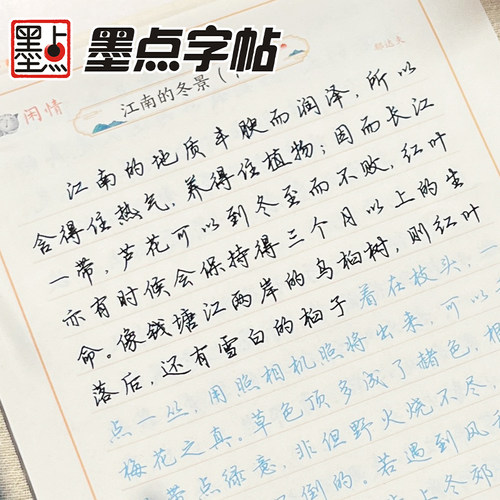 墨点
墨点字帖
郁达夫
闲情
江南的冬景(
江南的地质丰腴而润泽，所以
含得住热气，养得住植物；因而长江
一带，芦花可以到冬至而不败，红叶
亦有时候会保持得三个月以上的生
命。像钱塘江两岸的乌桕树，则红叶
落后，还有雪白的桕子着在枝头，一
点一丛，用照相机照将出来，可以
梅花之真。草色顶多成了赭色，根
带点绿意，非但野火烧不尽，
倒的。若遇到风
上冬郊